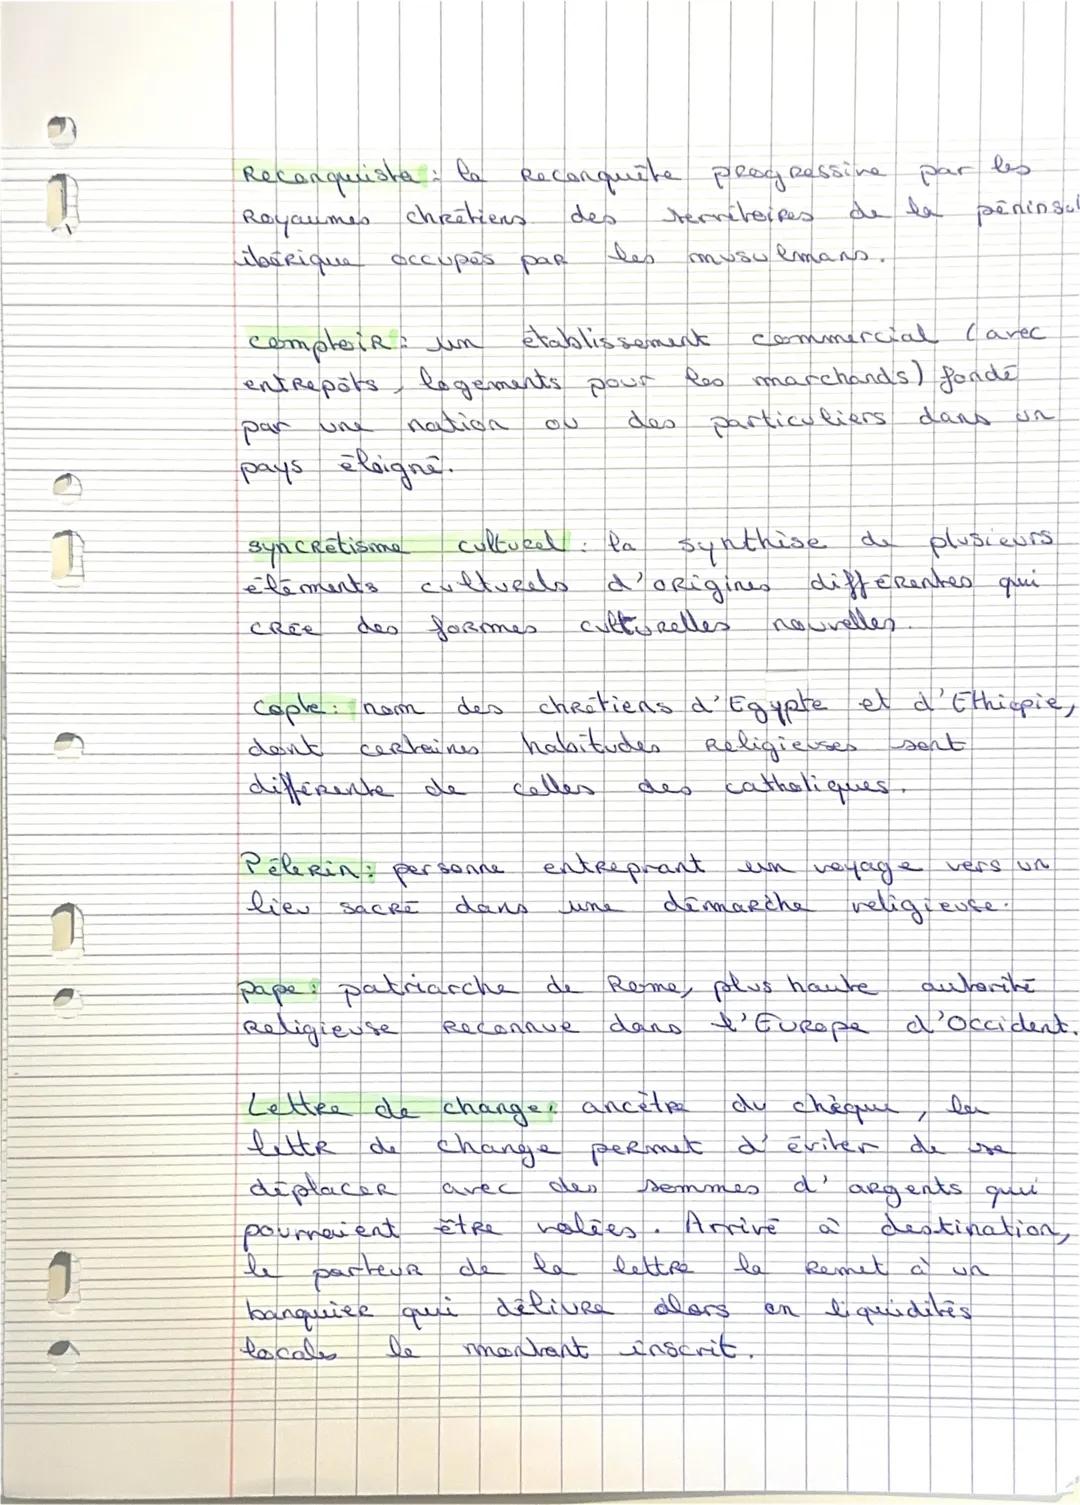 Reconquista : la Reconquête progressive par les
Royaumes chrétiens des territoires de la péninsul
ibérique occupés par les musulmans.
comptoir : un établissement commercial (avec
entrepôts, logements pour les marchands) fondé
par une nation ou des particuliers dans un
pays éloigné.
syncrétisme culturel : la synthèse de plusieurs
éléments culturels d'origines différentes qui
crée des formes culturelles nouvelles.
copte : nom des chrétiens d'Egypte et d'Ethiopie,
dont certaines habitudes religieuses sont
différente de celles des catholiques.
Pélerin : personne entreprant un voyage vers un
lieu sacré dans une démarche religieuse.
pape : patriarche de Rome, plus haute autorité
Religieuse Reconnue dans l'Europe d'Occident.
Lettre de change : ancêtre du chèque, la
lettr de change permet d'éviter de se
déplacer avec des sommes d'argents qui
pourraient être volées. Arrivé à destination,
le porteur de la lettre la remet à un
banquier qui délivre alors en liquidités
locales le montant inscrit.